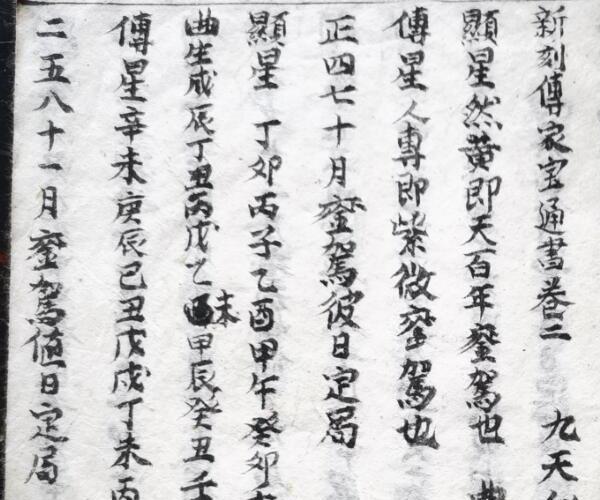 新刻傳家宝通書卷二 九天
顯星然黄即天百年蛮駕也 曲
傳星人專即紫微蛮駕也
正四七十月蛮駕彼日定局
顯星 丁卯丙子乙酉甲午癸卯
曲生戊辰丁丑丙戌乙未甲辰癸丑壬
傳星辛未庚辰己丑戊戌丁未丙
二五八十一月蛮駕值日定局